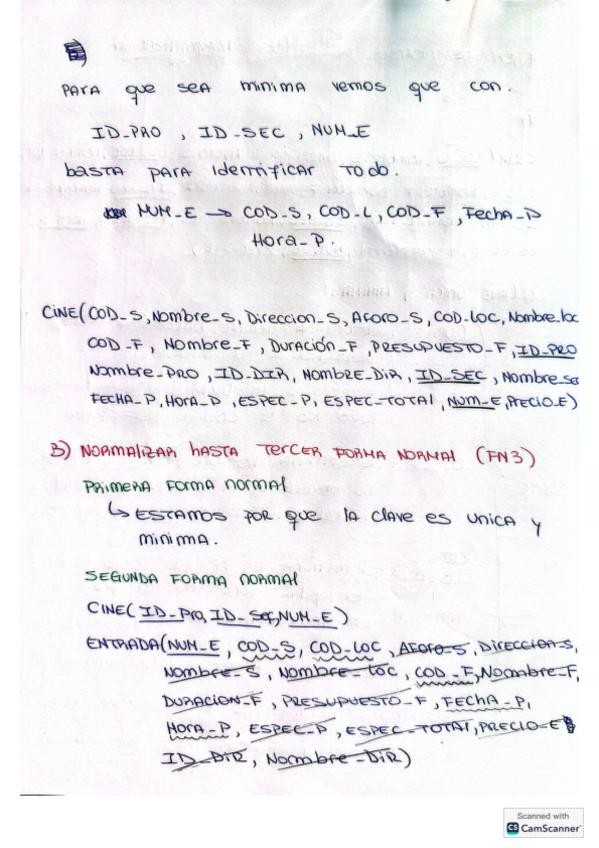 PARA que sea minima vemos que con.
ID_PRO , ID_SEC , NUM_E
basta para identificar todo.
NUM_E → COD_S, COD_L, COD_F, Fecha_P
Hora_P.
CINE(COD_S, Nombre_S, Direccion_S, Aforo_S, COD_Loc, Nombre_loc
COD_F, Nombre_F, Duración_F, PRESUPUESTO_F, ID_PRO
Nombre_PRO, ID_DIR, Nombre_Dir, ID_SEC, Nombre_se
FECHA_P, Hora_P, ESPEC_P, ESPEC_TOTAL, NUM_E, PRECIO_E)
3) NORMALIZAR hasta TERCER FORMA NORMAL (FN3)
Primera forma normal
↳ ESTAMOS POR que la clave es unica y
minima.
SEGUNDA FORMA normal
CINE( ID_Pro, ID_Sec, NUM_E )
ENTRADA(NUM_E, COD_S, COD_LOC, Aforo_S, Direccion_S,
Nombre_S, Nombre_loc, COD_F, Nombre_F,
DURACION_F, PRESUPUESTO_F, FECHA_P,
Hora_P, ESPEC_P, ESPEC_TOTAL, PRECIO_E
ID_DIR, Nombre_DIR)
Scanned with
CS CamScanner